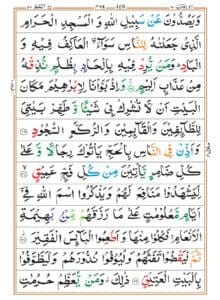 وَيَصُدُّوْنَ عَنْ سَبِيْلِ اللّٰهِ وَ الْمَسْجِدِ الْحَرَامِ
الَّذِيْ جَعَلْنٰهُ لِلنَّاسِ سَوَآءَ اۨلْعَاكِفُ فِيْهِ وَ
الْبَادِ ؕ وَمَنْ يُّرِدْ فِيْهِ بِاِلْحَادٍۭ بِظُلْمٍ نُّذِقْهُ
مِنْ عَذَابٍ اَلِيْمٍ وَاِذْ بَوَّاْنَا لِاِبْرٰهِيْمَ مَكَانَ
الْبَيْتِ اَنْ لَّا تُشْرِكْ بِيْ شَيْـًٔا وَّطَهِّرْ بَيْتِيَ
لِلطَّآئِفِيْنَ وَالْقَآئِمِيْنَ وَالرُّكَّعِ السُّجُوْدِ
وَاَذِّنْ فِي النَّاسِ بِالْحَجِّ يَاْتُوْكَ رِجَالًا وَّ عَلٰى
كُلِّ ضَامِرٍ يَّاْتِيْنَ مِنْ كُلِّ فَجٍّ عَمِيْقٍ
لِّيَشْهَدُوْا مَنَافِعَ لَهُمْ وَيَذْكُرُوا اسْمَ اللّٰهِ فِيْٓ
اَيَّامٍ مَّعْلُوْمٰتٍ عَلٰى مَا رَزَقَهُمْ مِّنْۢ بَهِيْمَةِ
الْاَنْعَامِ فَكُلُوْا مِنْهَا وَ اَطْعِمُوا الْبَآئِسَ الْفَقِيْرَ
ثُمَّ لْيَقْضُوْا تَفَثَهُمْ وَلْيُوْفُوْا نُذُوْرَهُمْ وَلْيَطَّوَّفُوْا
بِالْبَيْتِ الْعَتِيْقِ ذٰلِكَ وَمَنْ يُّعَظِّمْ حُرُمٰتِ